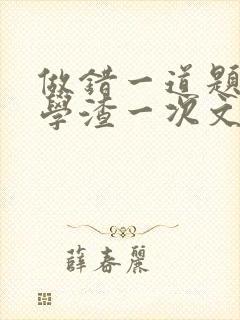 做錯一道題
學渣一次文
薛春麗